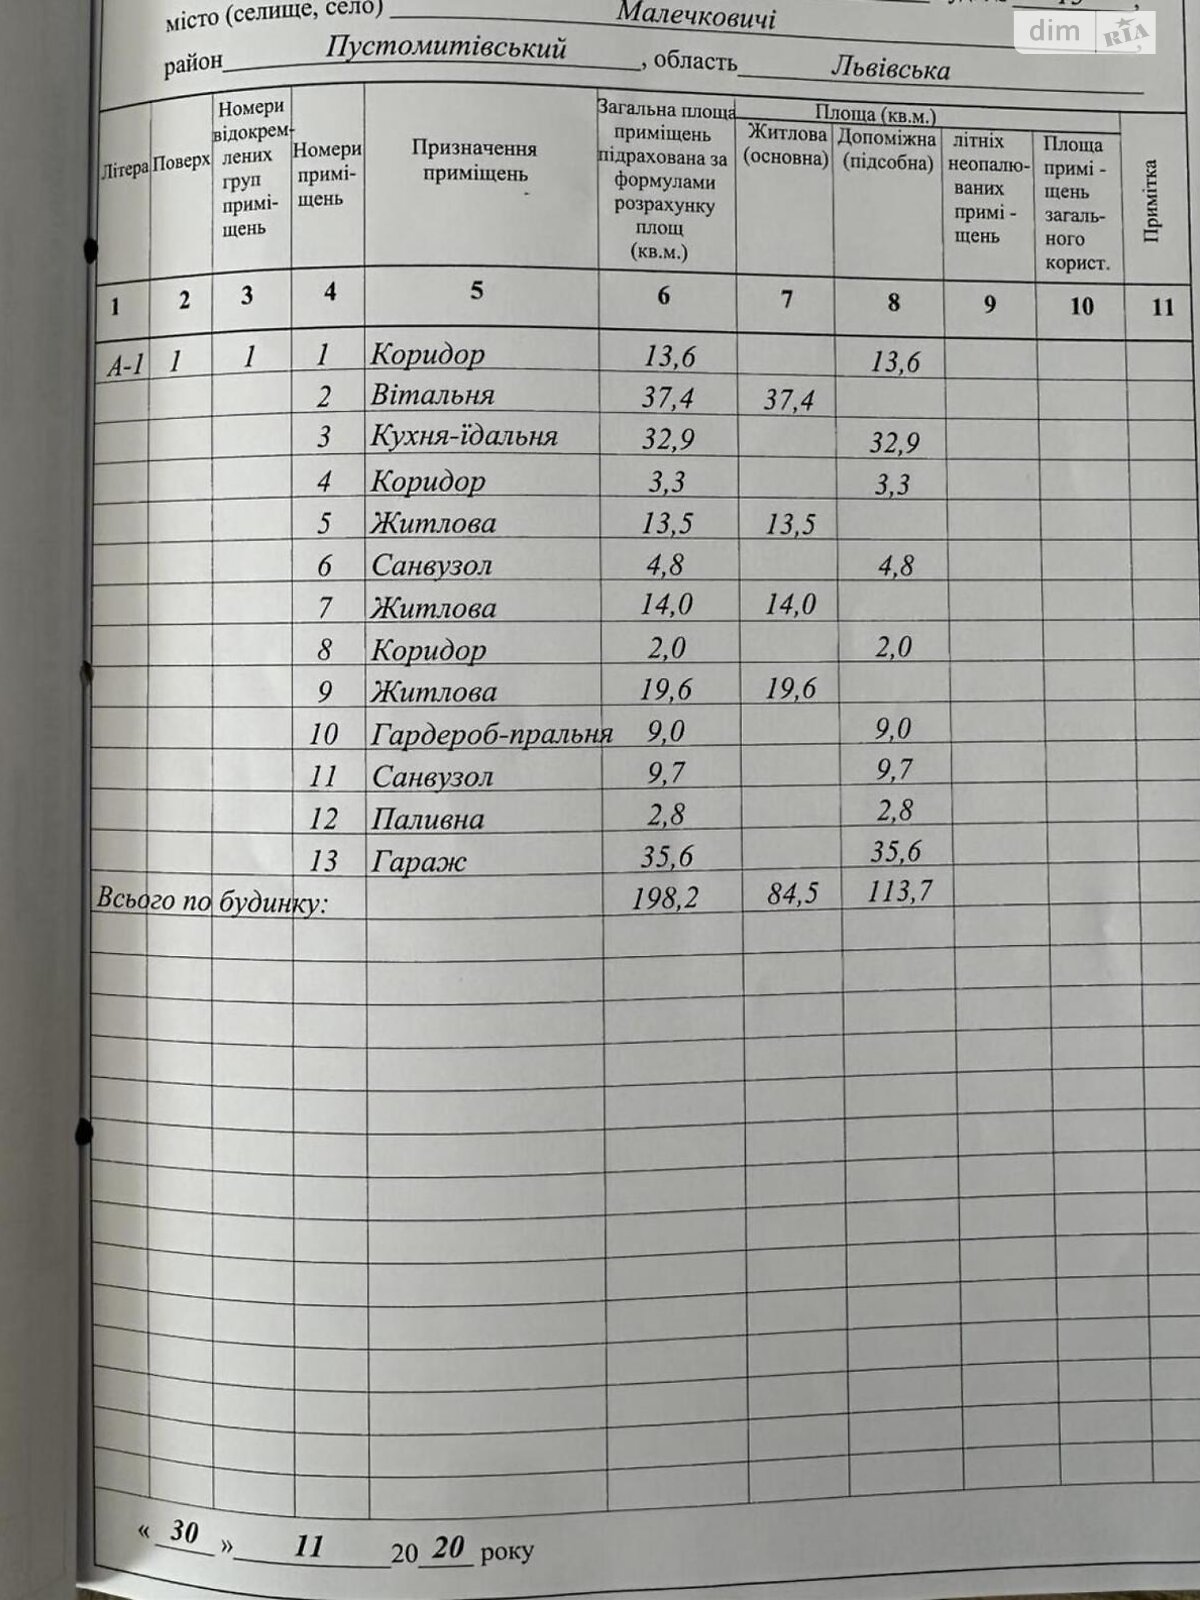 місто (селище, село) Малечковичі
dim RIA
район Пустомитівський, область Львівська
Літера
Поверх
Номери відокрем-лених груп примі-щень
Номери примі-щень
Призначення приміщень
Загальна площа приміщень підрахована за формулами розрахунку площ (кв.м.)
Площа (кв.м.)
Житлова (основна)
Допоміжна (підсобна)
літніх неопалю-ваних примі - щень
Площа примі - щень загаль-ного корист.
Примітка
1 2 3 4 5 6 7 8 9 10 11
А-1 1 1 1 Коридор 13,6 13,6
2 Вітальня 37,4 37,4
3 Кухня-їдальня 32,9 32,9
4 Коридор 3,3 3,3
5 Житлова 13,5 13,5
6 Санвузол 4,8 4,8
7 Житлова 14,0 14,0
8 Коридор 2,0 2,0
9 Житлова 19,6 19,6
10 Гардероб-пральня 9,0 9,0
11 Санвузол 9,7 9,7
12 Паливна 2,8 2,8
13 Гараж 35,6 35,6
Всього по будинку: 198,2 84,5 113,7
« 30 » 11 20 20 року